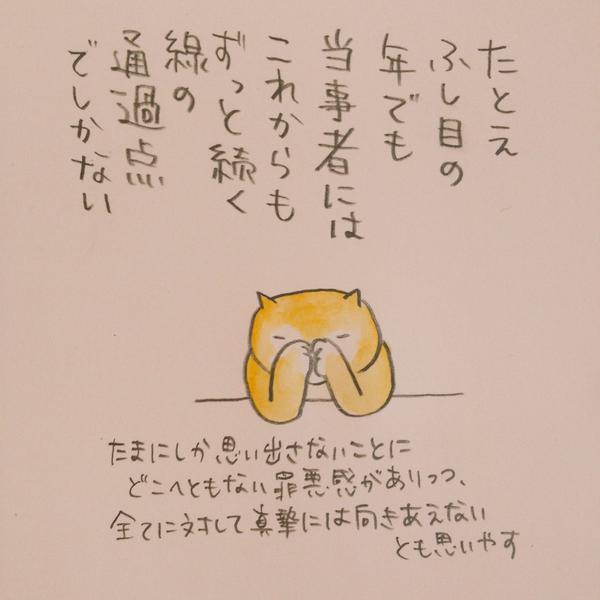 たとえ
ふし目の
年でも
当事者には
これからも
ずっと続く
線の
通過点
でしかない
たまにしか思い出さないことに
どこへともない罪悪感がありつつ、
全てに対して真摯には向きあえない
とも思いやす